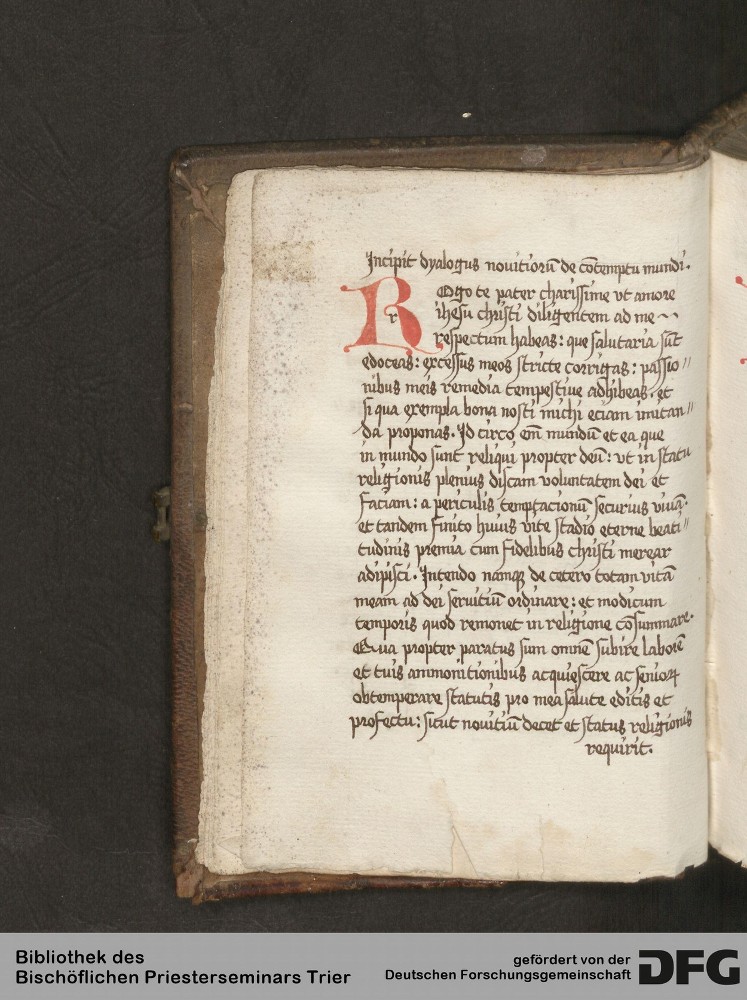 Incipit dyalogus nouitiorū de cōtemptu mundi.
R Ogo te pater charissime vt amore
r ihesu christi diligentem ad me
respectum habeas: que salutaria sūt
edoceas: excessus meos stricte corrigas: passio//
nibus meis remedia tempestiue adhibeas. et
si qua exempla bona nosti michi eciam imitan//
da proponas. Id circo em̄ mundū et ea que
in mundo sunt reliqui propter deū: vt in statu
religionis plenius discam voluntatem dei et
faciam: a periculis temptacionū securius viuā.
et tandem finito huius vite stadio eterne beati//
tudinis premia cum fidelibus christi merear
adipisci. Intendo namqꝫ de cetero totam vitā
meam ad dei seruitiū ordinare: et modicum
temporis quod remonet in religione cōsummare.
Qua propter paratus sum omnē subire laborē
et tuis ammonitionibus acquiescere ac senioꝝ
obtemperare statutis pro mea salute editis et
profectu: sicut nouitiū decet et status religionis
requirit.
Bibliothek des
Bischöflichen Priesterseminars Trier
gefördert von der
Deutschen Forschungsgemeinschaft
DFG